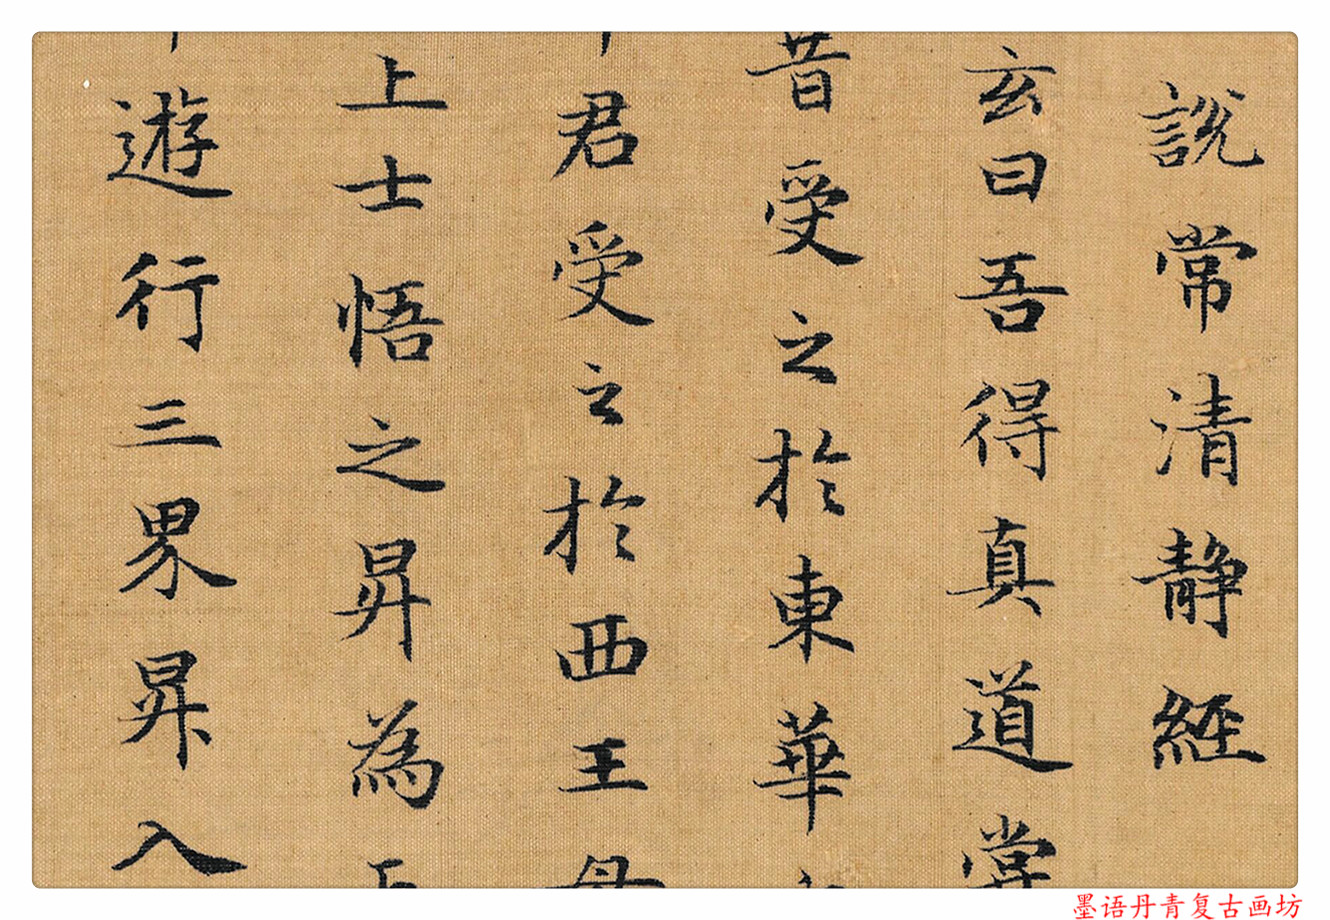 說常清静經
玄曰吾得真道嘗
昔受之於東華
君受之於西王母
上士悟之昇為
遊行三界昇入
墨语丹青复古画坊